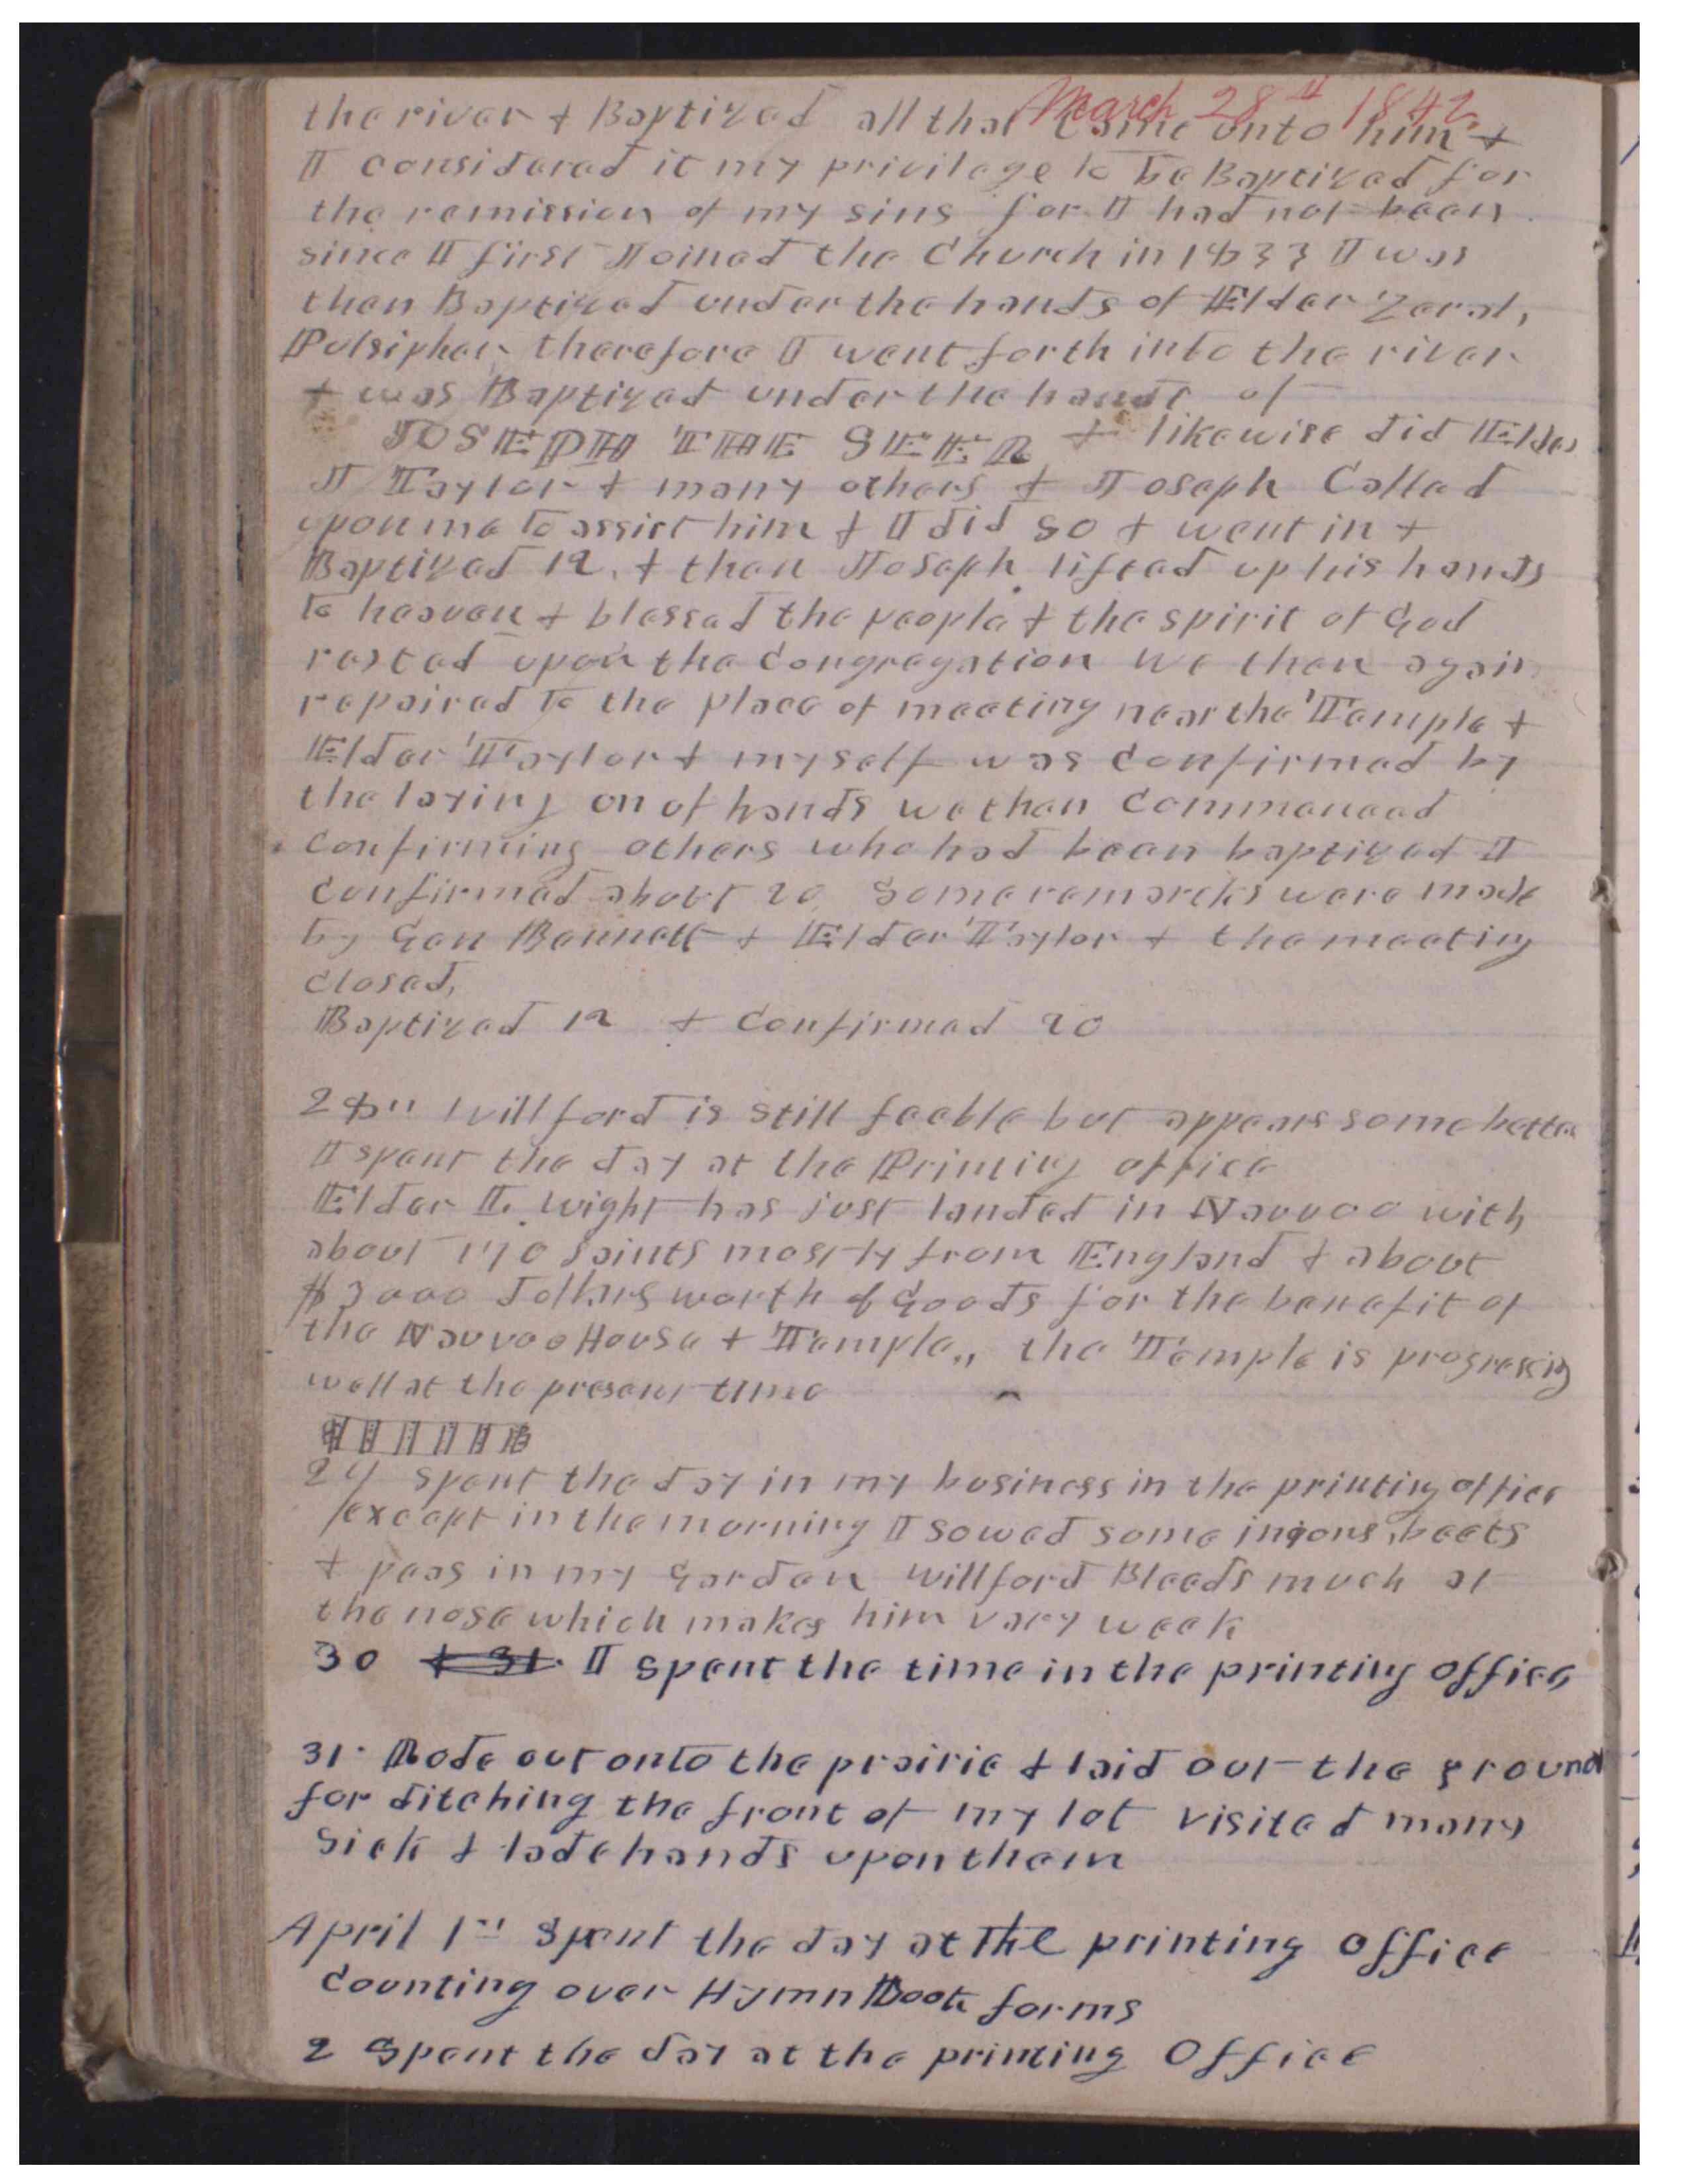 March 28th 1842.
the river & Baptized all that Came unto him &
I considered it my privilege to be Baptized for
the remission of my sins for I had not been
since I first Joined the Church in 1833 I was
then Baptized under the hands of Elder Zerah,
Pulsipher, therefore I went forth into the river
& was Baptized under the hands of
JOSEPH THE SEER & likewise did Elder
J Taylor & many others & Joseph Called
upon me to assist him & I did so & went in &
Baptized 12. & then Joseph lifted up his hands
to heaven & blessed the people & the spirit of God
rested upon the congregation we then again
repaired to the place of meeting near the Temple &
Elder Taylor & myself was confirmed by
the laying on of hands we then commenced
confirming others who had been baptized I
confirmed about 20 Some remarcks were made
by Gen Bennett & Elder Taylor & the meeting
closed,
Baptized 12 & confirmed 20
28th Willford is still feeble but appears some better
I spent the day at the Printing office
Elder L. Wight has just landed in Nauvoo with
about 170 Saints mostly from England & about
$3000 dollars worth of Goods for the benefit of
the Nauvoo House & Temple,, the Temple is progressing
well at the present time
29 spent the day in my business in the printing office
except in the morning I sowed some inions, beets
& peas in my garden Willford Bleeds much at
the nose which makes him very week
30 & 31. I spent the time in the printing office
31. Rode out onto the prairie & laid out the ground
for ditching the front of my lot visited many
Sick & lade hands upon them
April 1st Spent the day at the printing office
counting over Hymn Book forms
2 Spent the day at the printing Office